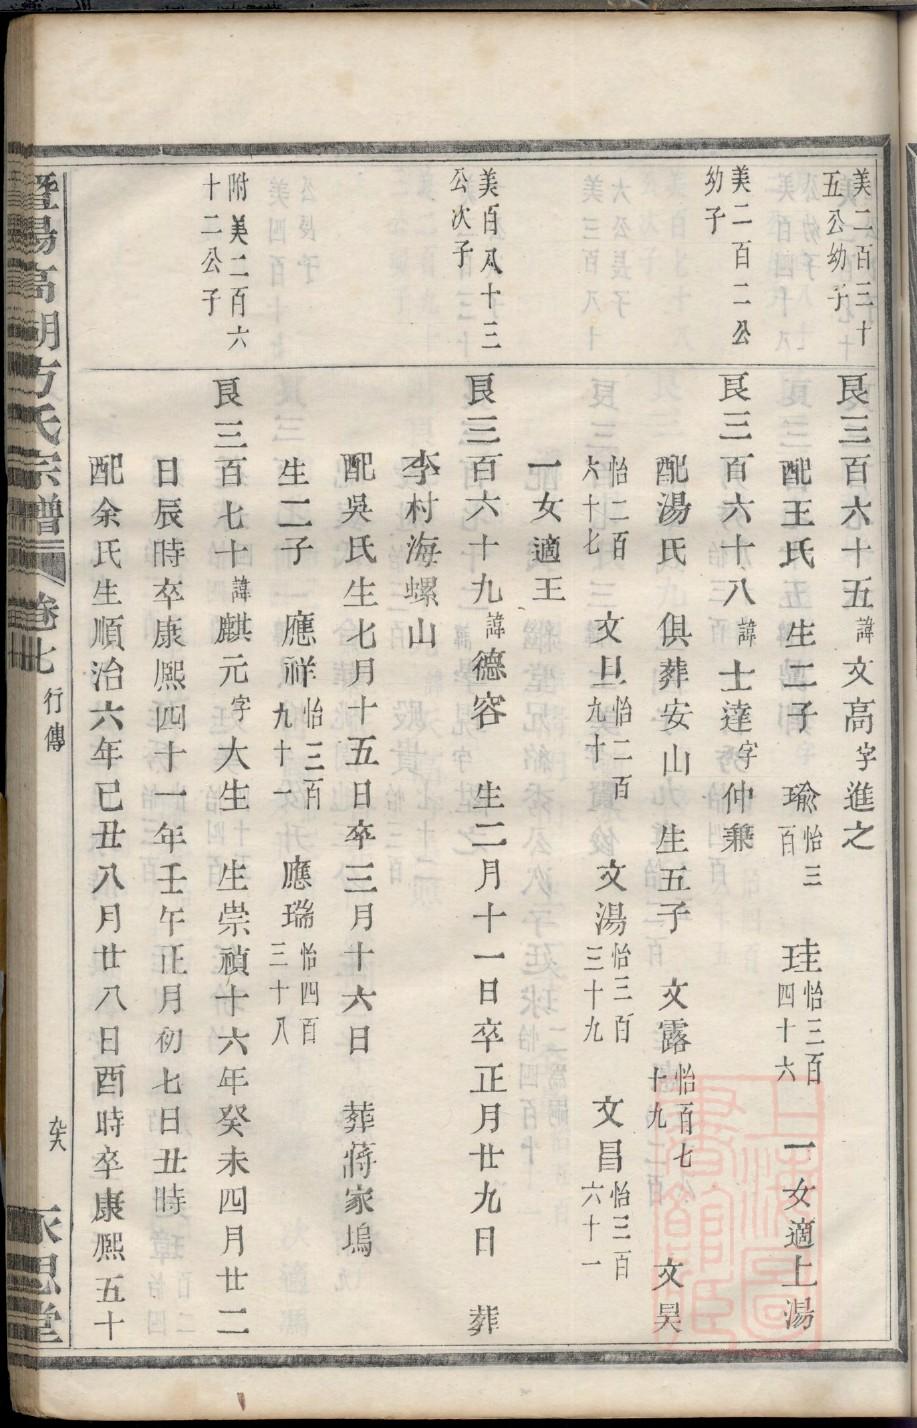 美二百三十
五公幼子
良三百六十五諱文高字進之
配王氏 生二子 瑜怡三百 珪怡三百四十六 一女適上湯
美二百二公
幼子
良三百六十八諱士達字仲兼
配湯氏 俱葬安山 生五子 文露怡百七十九 文昊
怡二百六十七 文旦怡二百九十 文湯怡三百三十九 文昌怡三百六十一
一女適王
美百八十三
公次子
良三百六十九諱德容 生二月十一日卒正月廿九日 葬
李村海螺山
配吳氏生七月十五日卒三月十六日 葬蔣家塢
生二子 應祥怡三百九十一 應瑞怡四百三十八
附美二百六
十二公子
良三百七十諱麒元字大生 生崇禎十六年癸未四月廿二
日辰時卒康熙四十一年壬午正月初七日丑時
配余氏生順治六年已丑八月廿八日酉時卒康熙五十
暨陽高湖方氏宗譜 卷七 行傳 永思堂